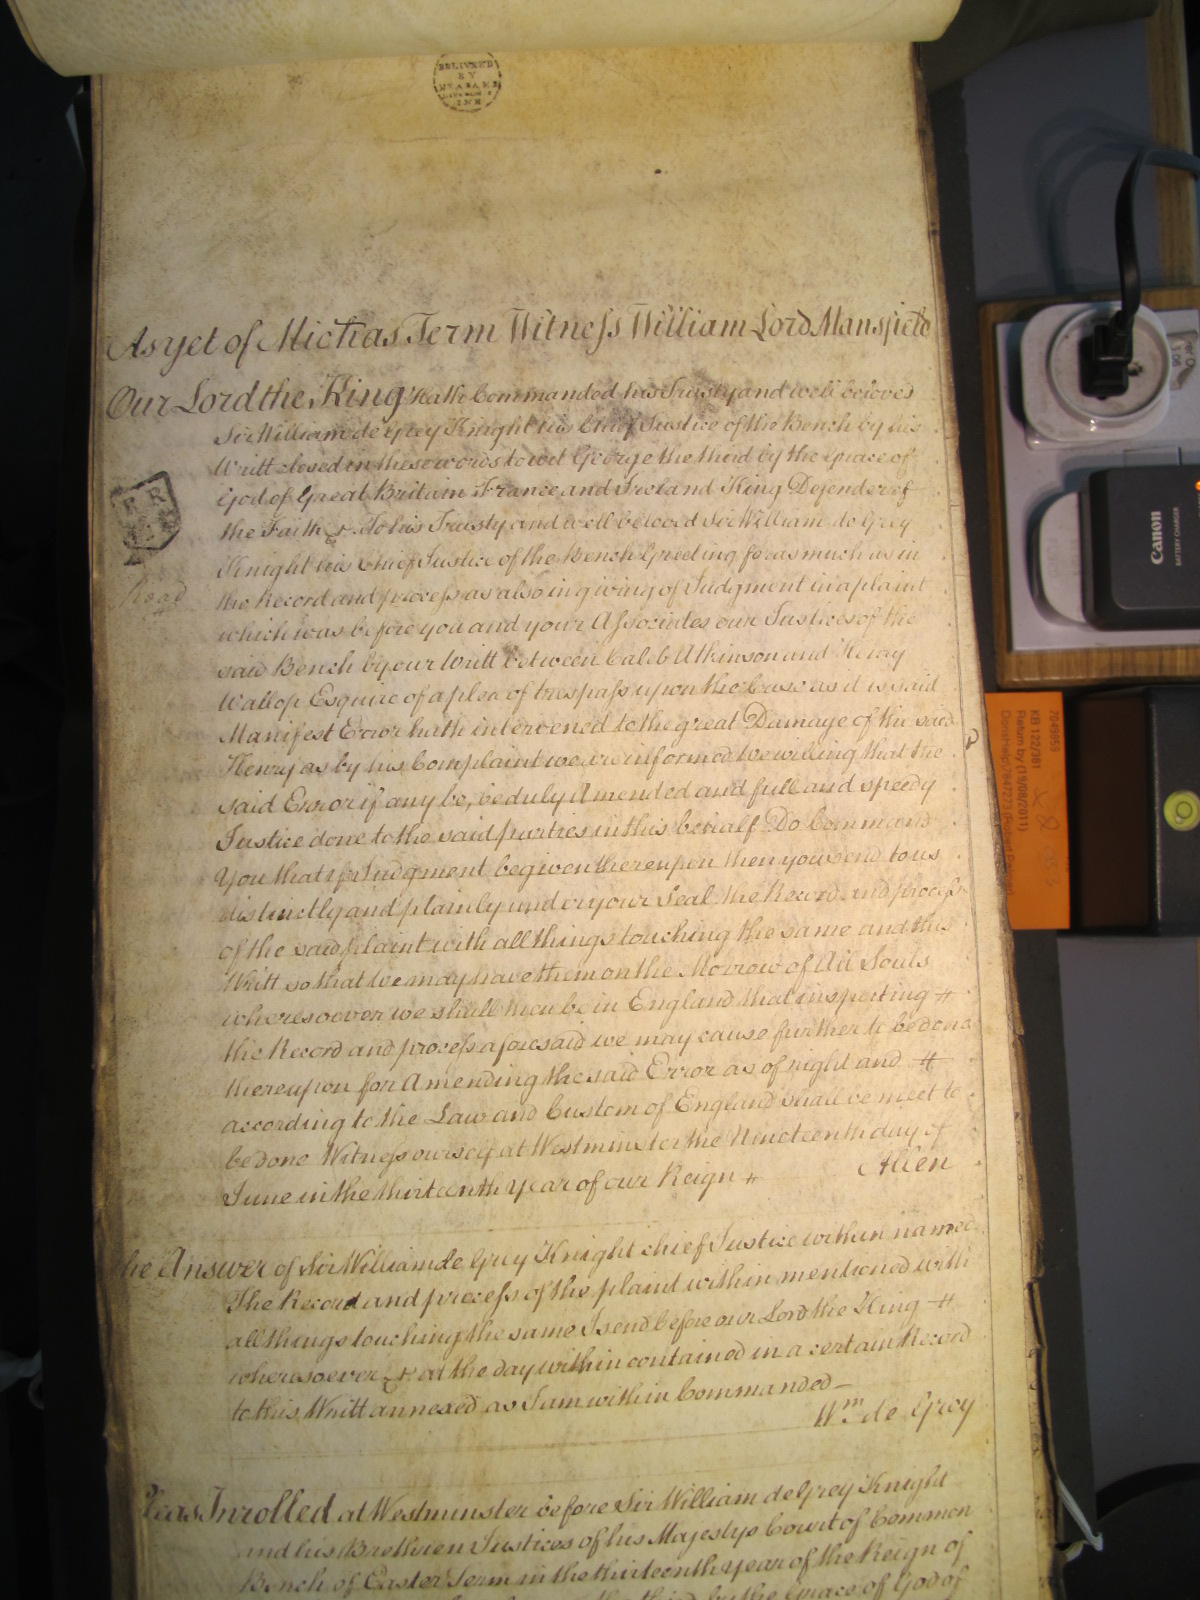 DELIVERED
BY
As yet of Mich'as Term Witness William Lord Mansfield
Our Lord the King hath Commanded his Trusty and well beloved
Sir William de Grey Knight his Chief Justice of the Bench by his
Writt closed in these words to wit George the third by the Grace of
God of Great Britain France and Ireland King Defender of
the Faith &c. To his Trusty and well beloved Sir William de Grey
Knight his Chief Justice of the Bench Greeting foras much as in
the Record and process as also in giving of Judgment in a plaint
which was before you and your Associates our Justices of the
said Bench by our Writt between Caleb Atkinson and Henry
Wallop Esquire of a plea of trespass upon the Case as it is said
Manifest Error hath intervened to the great Damage of the said
Henry as by his Complaint we are informed we willing that the
said Error if any be, be duly Amended and full and speedy
Justice done to the said parties in this behalf Do Command
You that if Judgment be given thereupon then you send to us
distinctly and plainly under your Seal the Record and process
of the said plaint with all things touching the same and this
Writt so that we may have them on the Morrow of All Souls
wheresoever we shall then be in England that inspecting
the Record and process aforesaid we may cause further to be done
thereupon for Amending the said Error as of right and
according to the Law and Custom of England shall be meet to
be done Witness ourself at Westminster the Nineteenth day of
June in the thirteenth Year of our Reign
Allen
he Answer of Sir William de Grey Knight chief Justice within named
The Record and process of the plaint within mentioned with
all things touching the same I send before our Lord the King
wheresoever &c at the day within contained in a certain Record
to this Writt annexed as I am within Commanded
Wm de Grey
leas Inrolled at Westminster before Sir William de Grey Knight
and his Brethren Justices of his Majestys Court of Common
Bench of Easter Term in the thirteenth Year of the Reign of
by the Grace of God of
Road
Canon
BATTERY CHARGER
7049853
KB 122/381
Return by (19/08/2011)